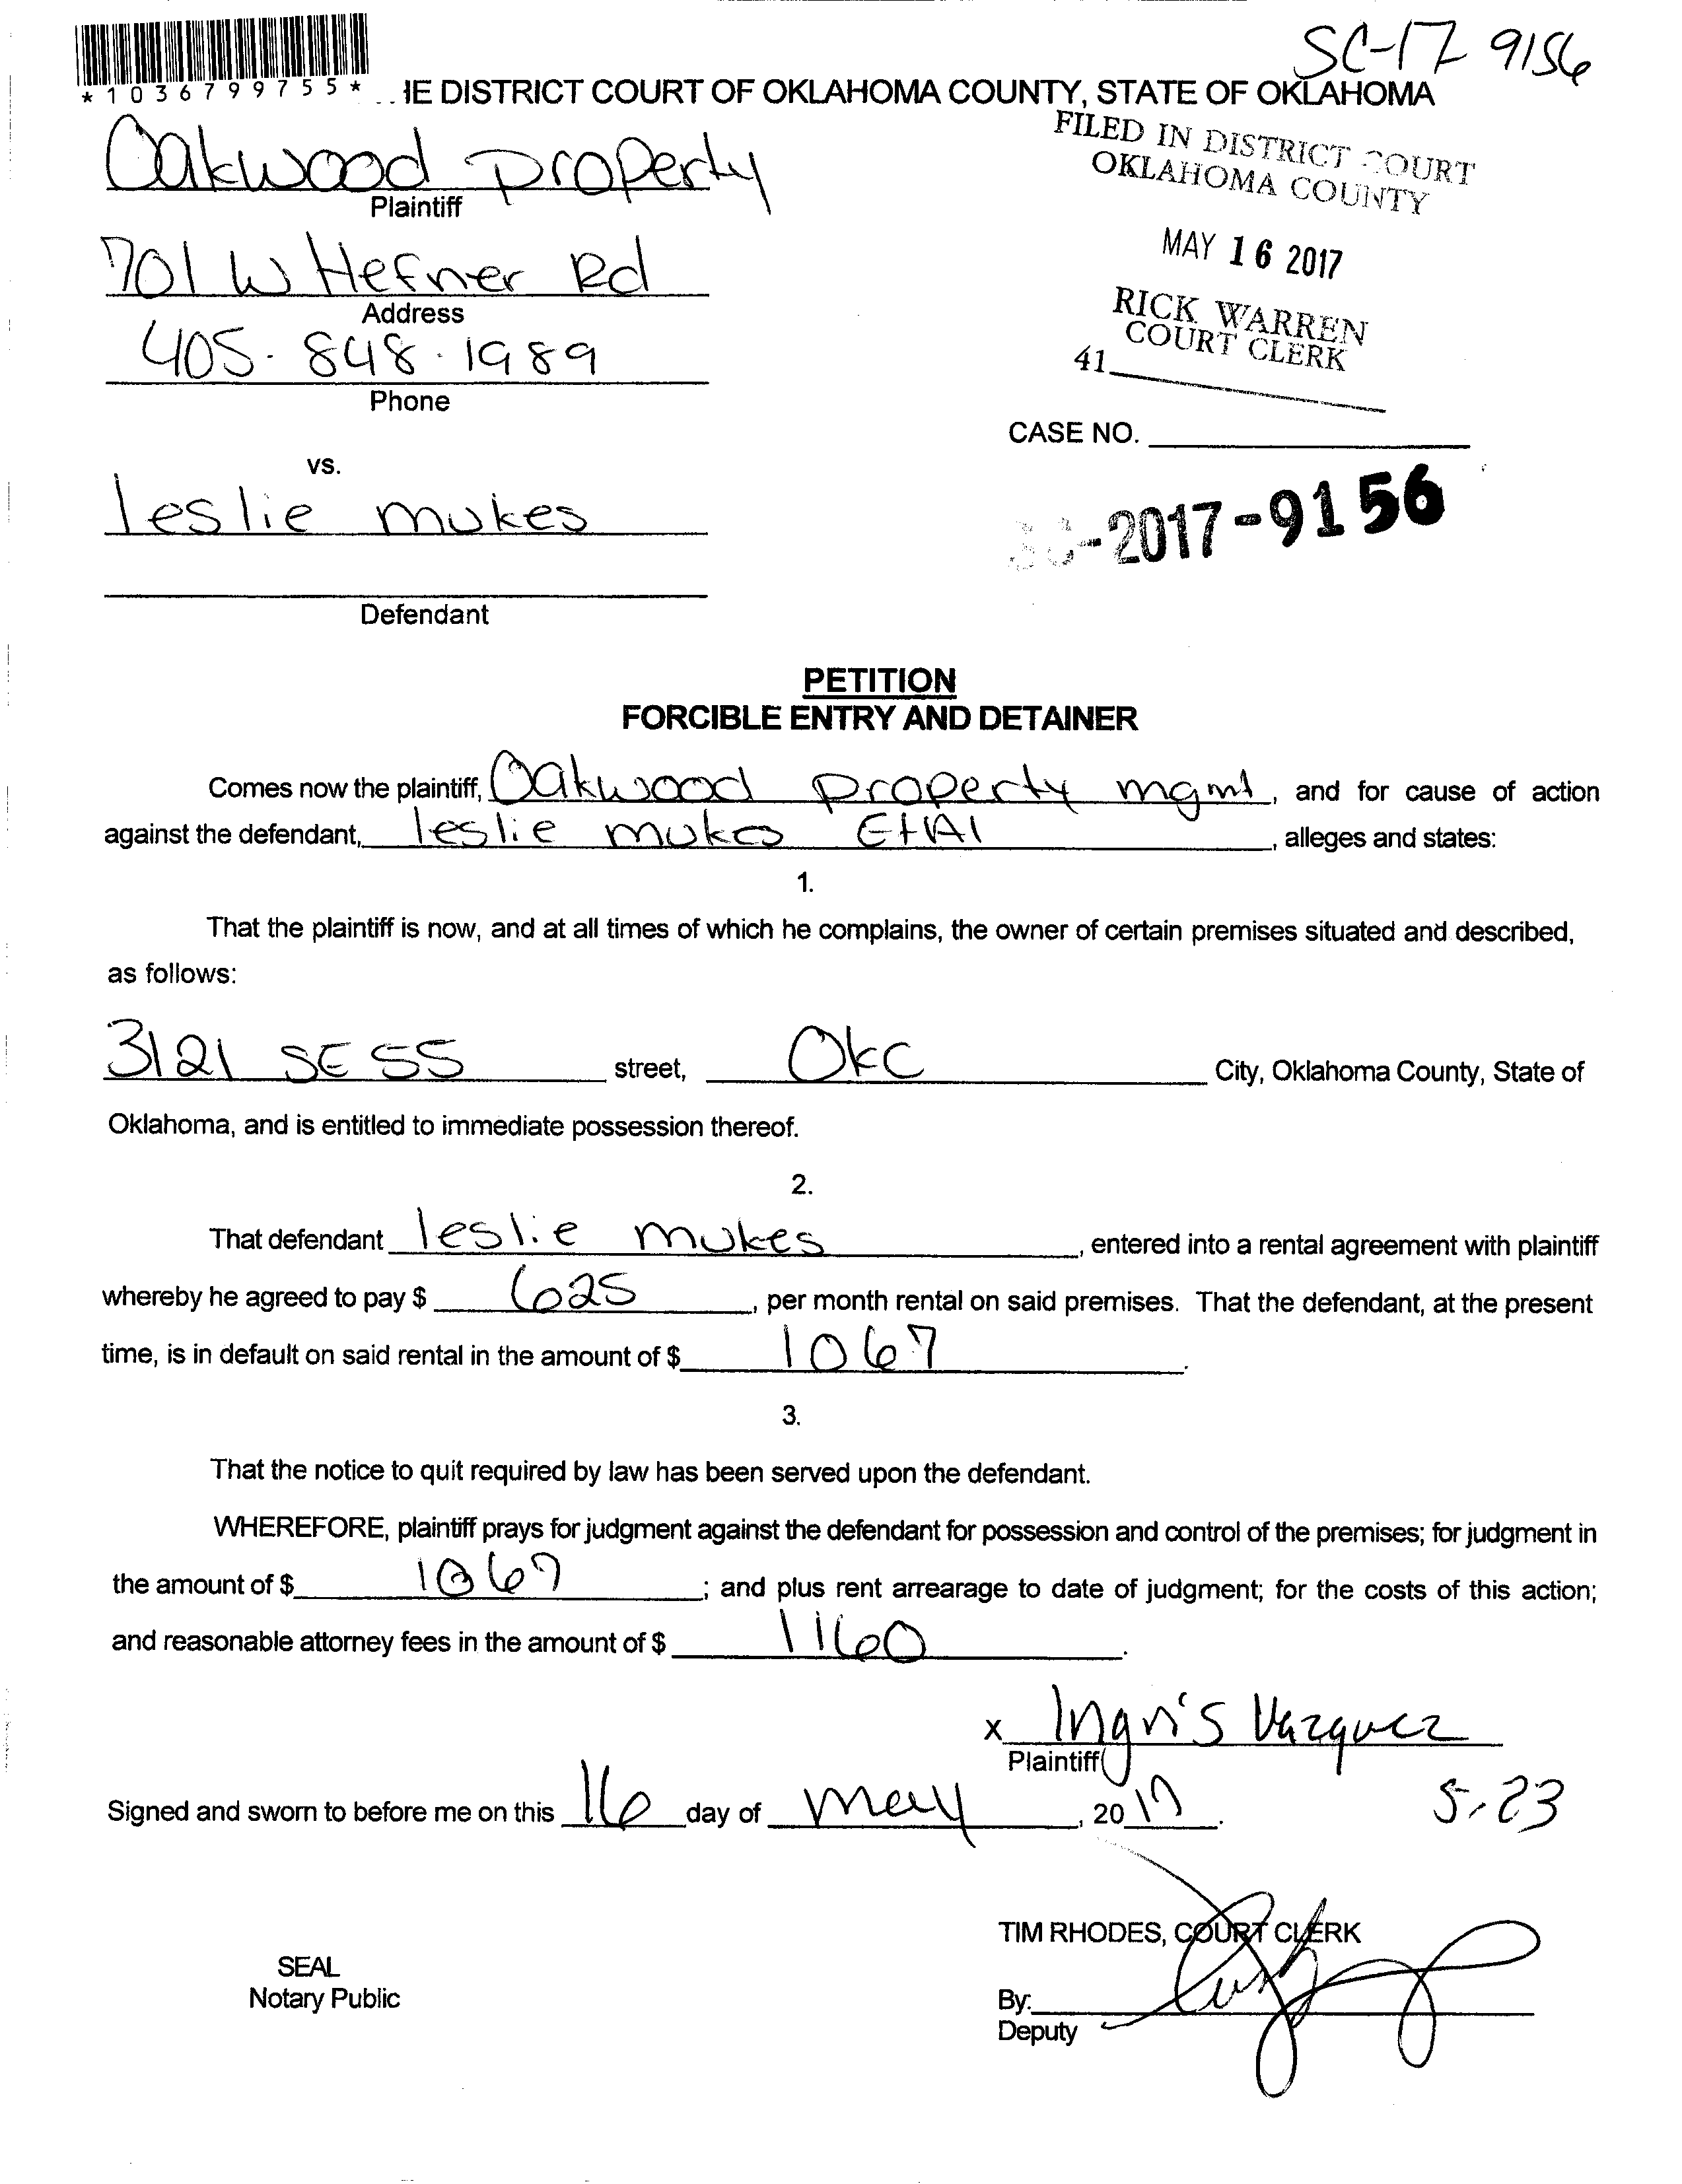 SC-17 9156
*1036799755*
IE DISTRICT COURT OF OKLAHOMA COUNTY, STATE OF OKLAHOMA
Oakwood property
Plaintiff
701 W Hefner Rd
Address
405-848-1989
Phone
FILED IN DISTRICT COURT
OKLAHOMA COUNTY
MAY 16 2017
RICK WARREN
COURT CLERK
41
CASE NO.
vs.
leslie mukes
SC-2017-9156
Defendant
PETITION
FORCIBLE ENTRY AND DETAINER
Comes now the plaintiff, Oakwood property mgmt, and for cause of action
against the defendant, leslie mukes EtAl, alleges and states:
1.
That the plaintiff is now, and at all times of which he complains, the owner of certain premises situated and described,
as follows:
3121 SE 55 street, Okc City, Oklahoma County, State of
Oklahoma, and is entitled to immediate possession thereof.
2.
That defendant leslie mukes, entered into a rental agreement with plaintiff
whereby he agreed to pay $ 625, per month rental on said premises. That the defendant, at the present
time, is in default on said rental in the amount of $ 1067.
3.
That the notice to quit required by law has been served upon the defendant.
WHEREFORE, plaintiff prays for judgment against the defendant for possession and control of the premises; for judgment in
the amount of $ 1067; and plus rent arrearage to date of judgment; for the costs of this action;
and reasonable attorney fees in the amount of $ 1160.
x Ingris Vazquez
Plaintiff
Signed and sworn to before me on this 16 day of may, 2017.
5-23
TIM RHODES, COURT CLERK
SEAL
Notary Public
By:
Deputy